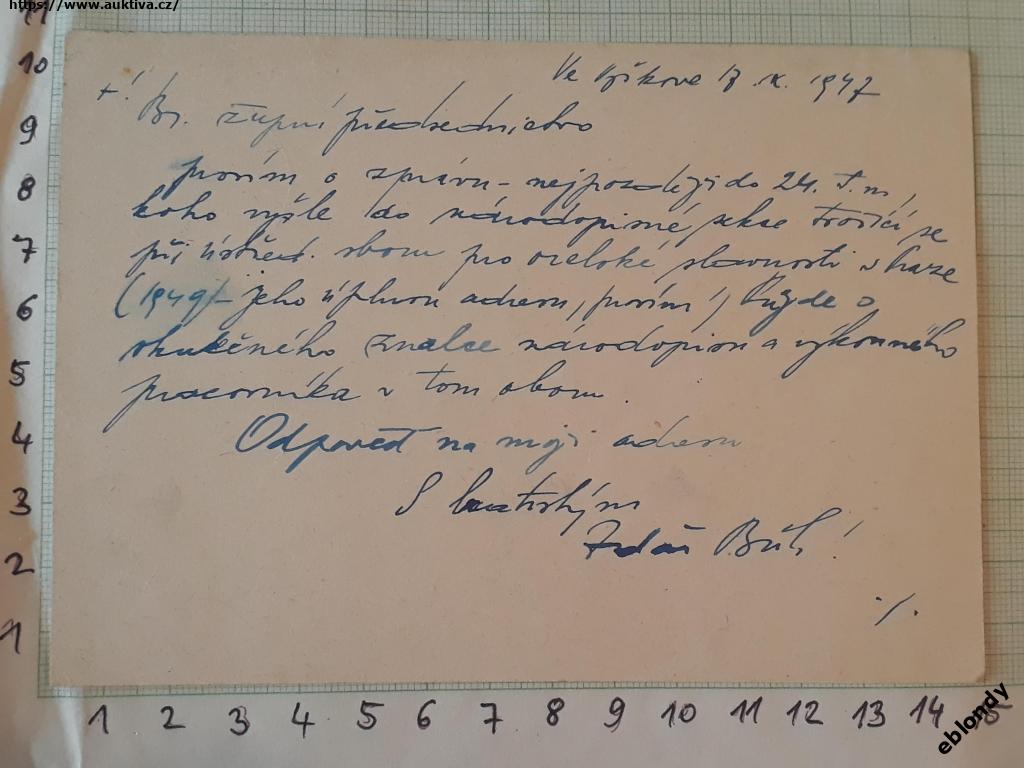 https://www.auktiva.cz/
Ve Vyškově 17. IX. 1947
+! Br. župní předsednictvo
prosím o zprávu - nejpozději do 24. t. m.,
koho vyšle do národopisné sekce tvořící se
při ústřed. sboru pro orelské slavnosti v Praze
(1949) - jeho úplnou adresu, prosím! Půjde o
skutečného znalce národopisu a výkonného
pracovníka v tom oboru.
Odpověď na moji adresu
S bratrským
Zdař Bůh!
./.
11
10
9
8
7
6
5
4
3
2
1
1 2 3 4 5 6 7 8 9 10 11 12 13 14 15
eblondy